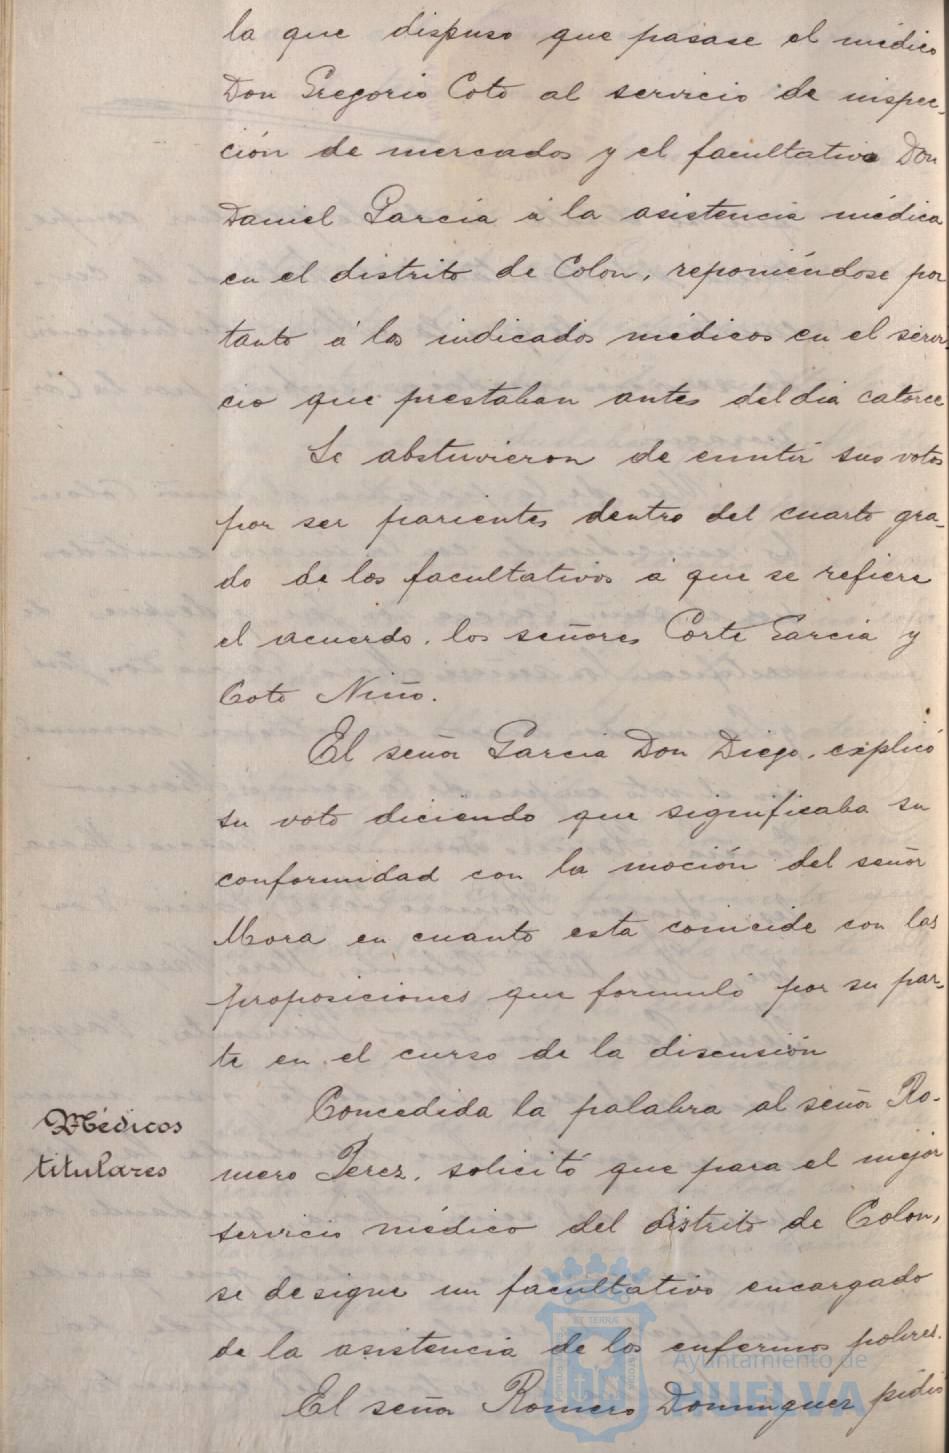 la que dispuso que pasase el médico
Don Gregorio Coto al servicio de inspec-
ción de mercados y el facultativo Don
Daniel García á la asistencia médica
en el distrito de Colon, reponiéndose por
tanto á los indicados médicos en el servi-
cio que prestaban antes del dia catorce
Se abstuvieron de emitir sus votos
por ser parientes dentro del cuarto gra-
do de los facultativos á que se refiere
el acuerdo, los señores Corte Garcia y
Coto Niño.
El señor Garcia Don Diego, explicó
su voto diciendo que significaba su
conformidad con la moción del señor
Mora en cuanto esta coincide con las
proposiciones que formuló por su par-
te en el curso de la discusión
Médicos
titulares
Concedida la palabra al señor Ro-
mero Perez, solicitó que para el mejor
servicio médico del distrito de Colon,
se designe un facultativo encargado
de la asistencia de los enfermos pobres.
El señor Romero Dominguez pidió
Ayuntamiento de
HUELVA